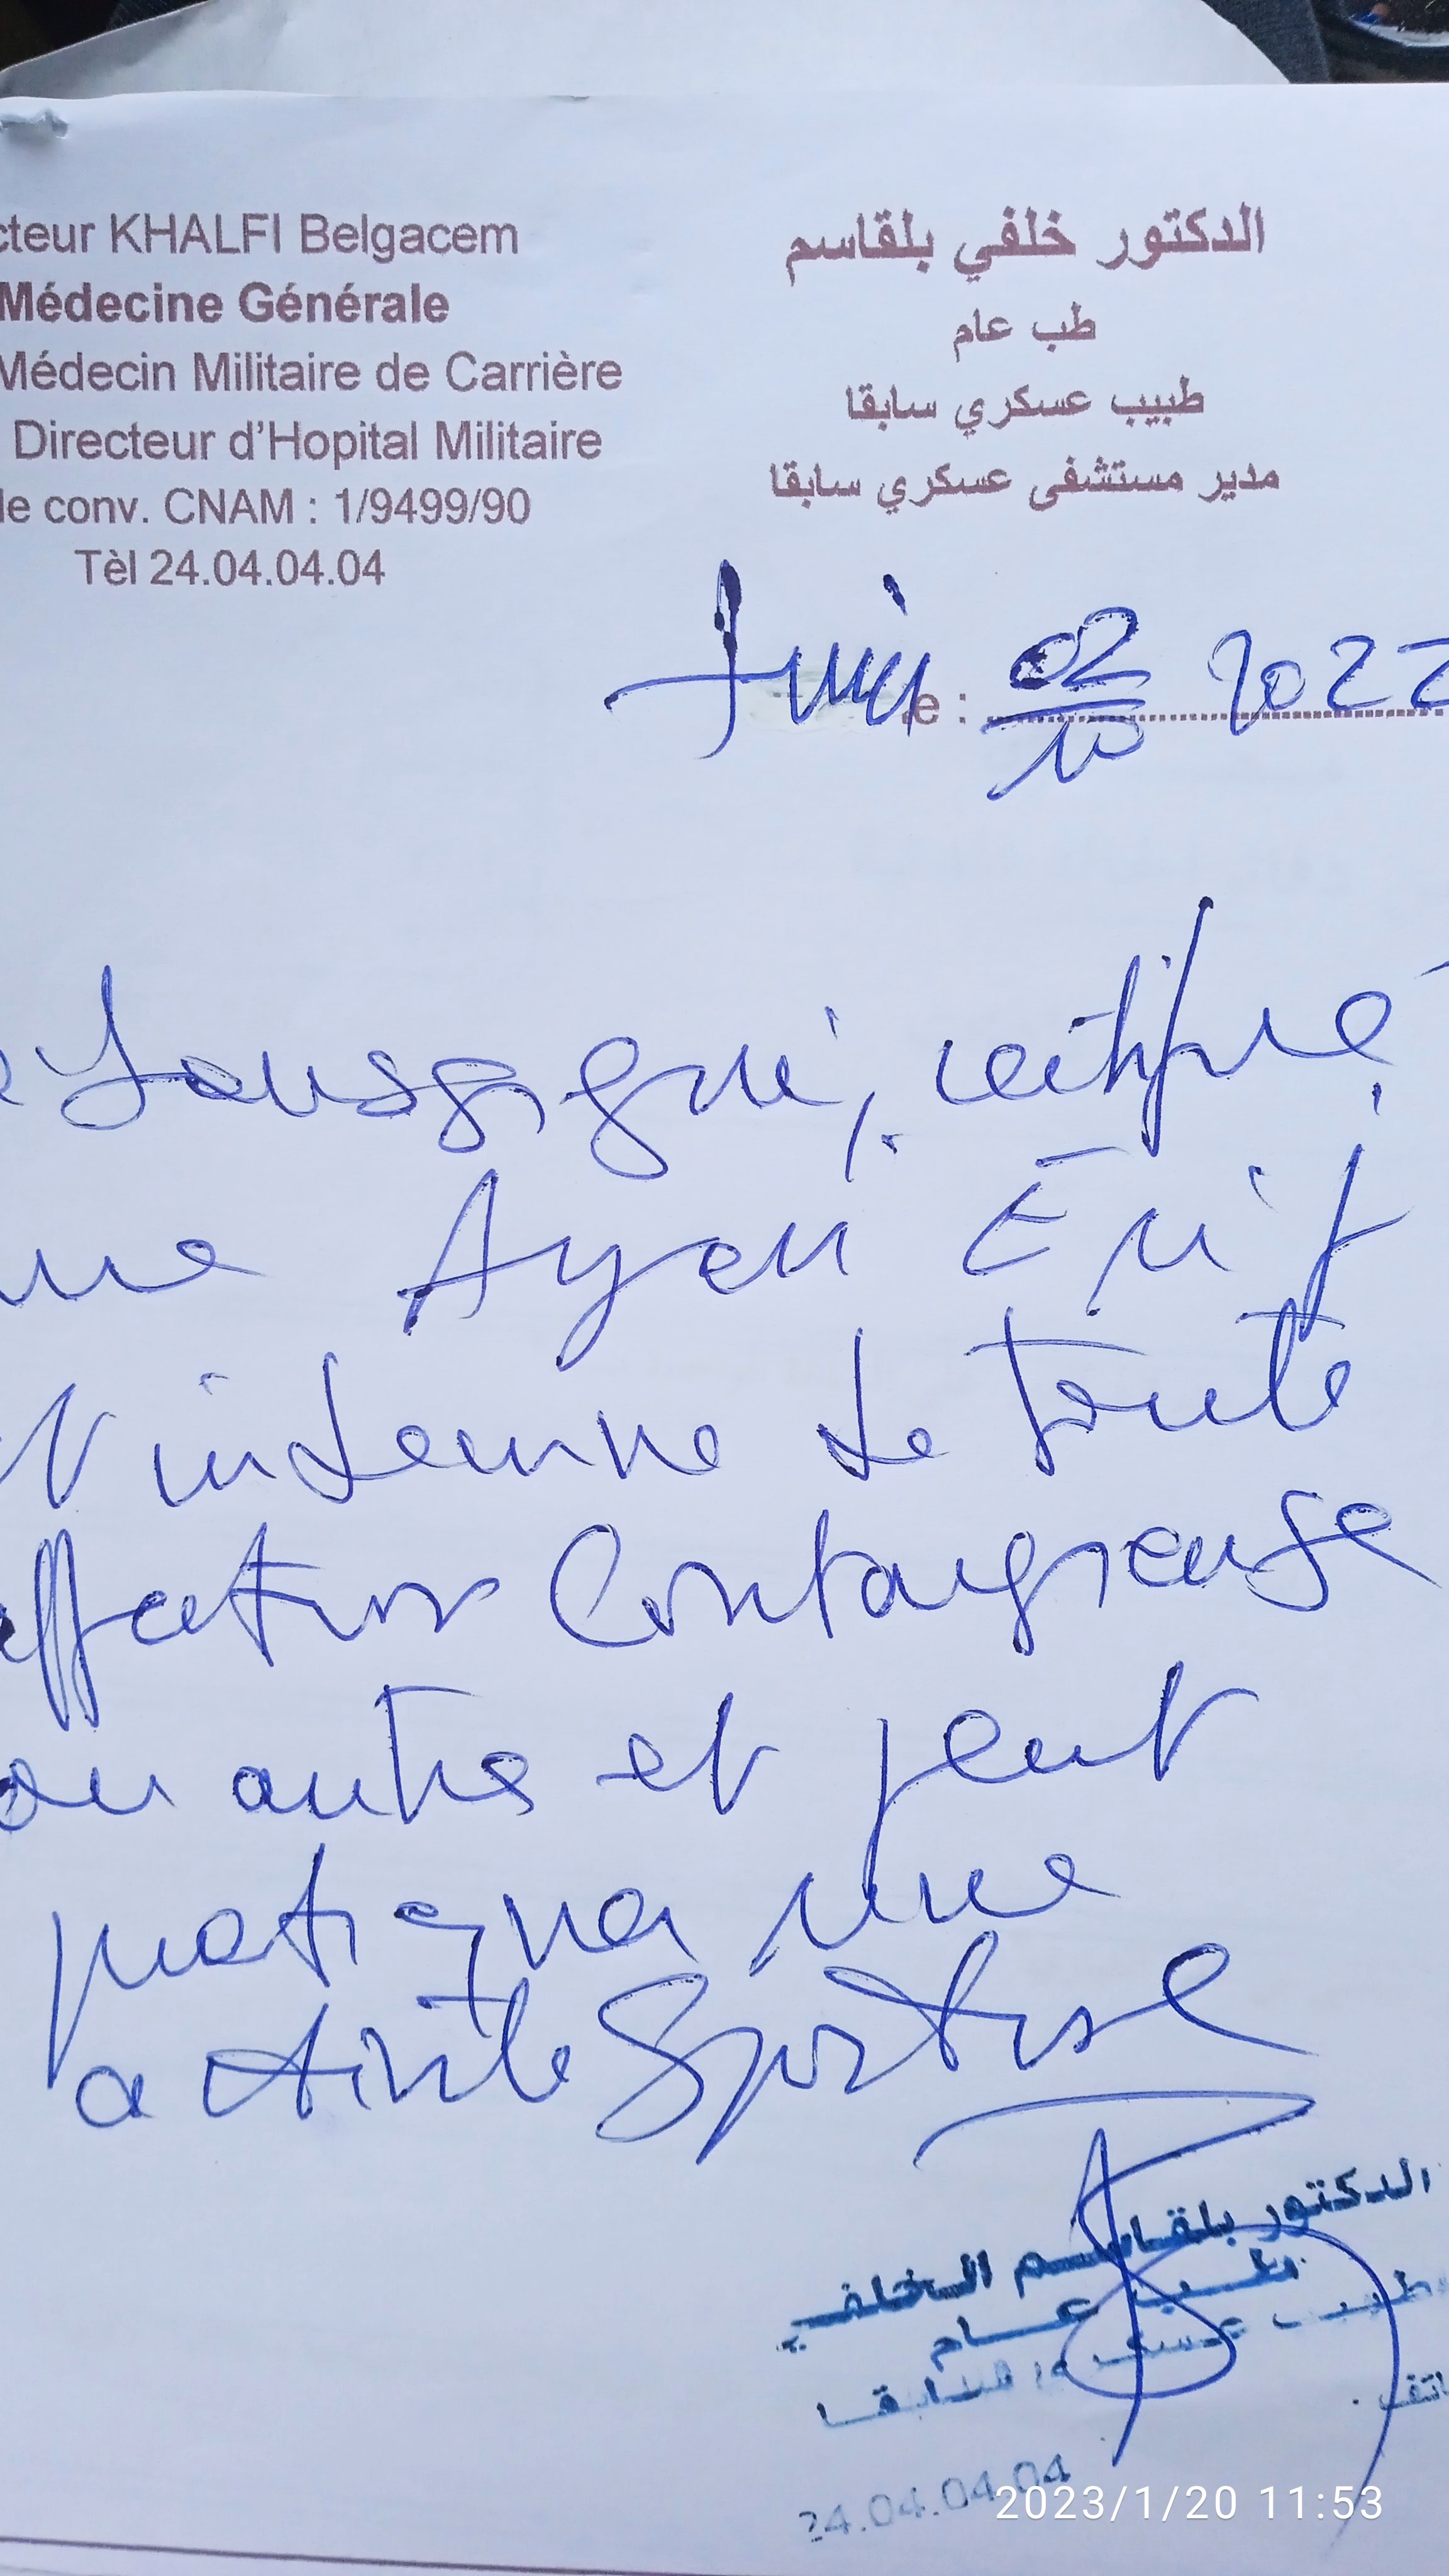 cteur KHALFI Belgacem
Médecine Générale
Médecin Militaire de Carrière
Directeur d'Hopital Militaire
de conv. CNAM : 1/9499/90
Tèl 24.04.04.04
الدكتور خلفي بلقاسم
طب عام
طبيب عسكري سابقا
مدير مستشفى عسكري سابقا
e : 02/10 2022
e Soussigné, certifie
que Ayen
est indemne de toute
affection Contagieuse
ou autre et peut
pratiquer une
activité Sportive
الدكتور بلقاسم الخلفي
طب عام
طبيب عسكري سابقا
24.04.04.04
2023/1/20 11:53